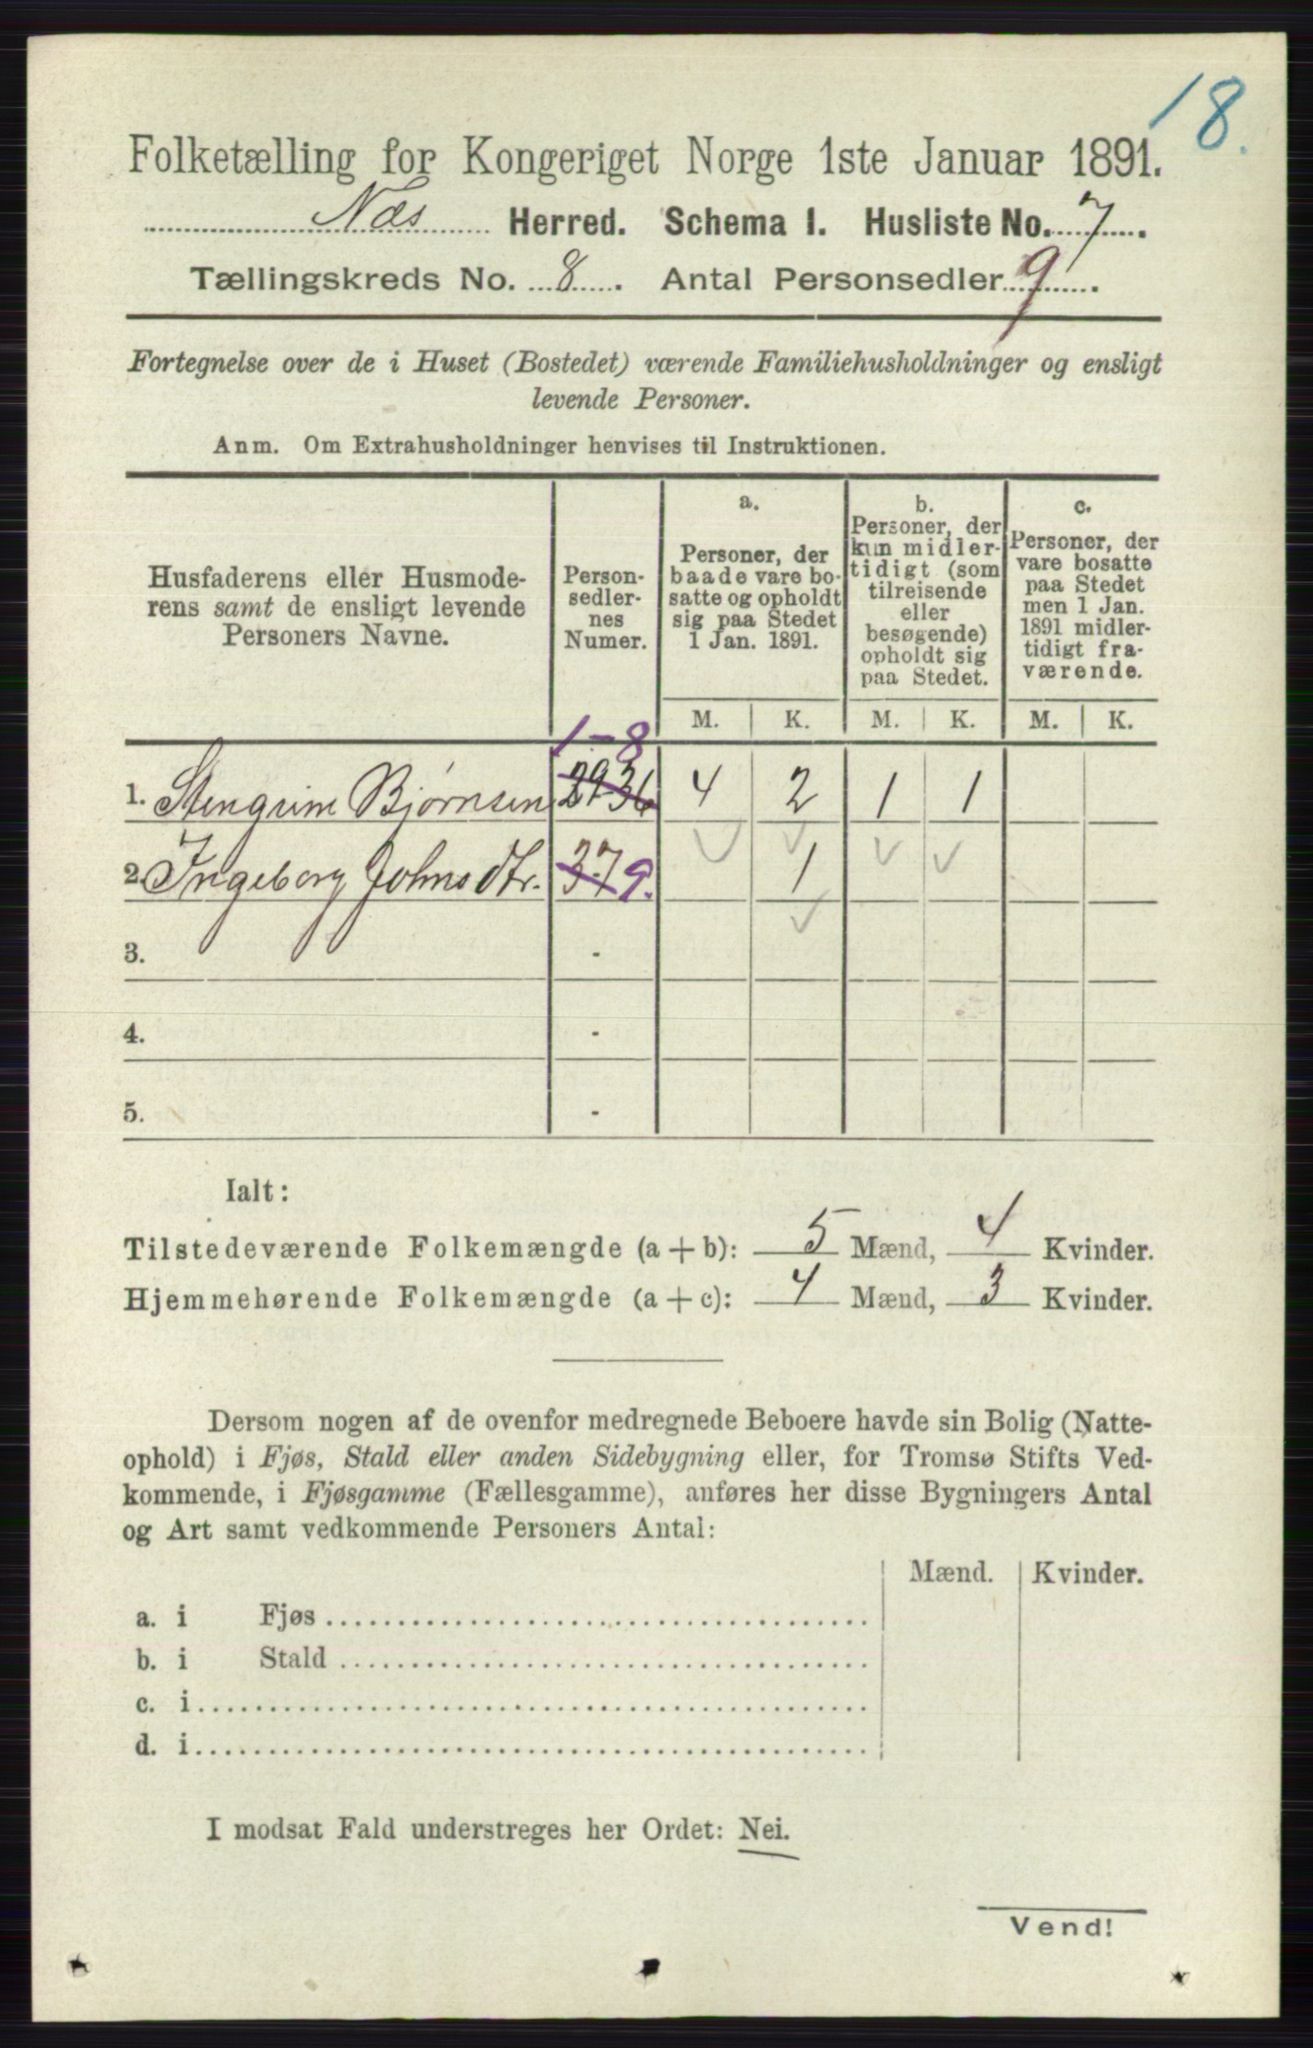 18.
Folketælling for Kongeriget Norge 1ste Januar 1891.
Næs Herred. Schema I. Husliste No. 7.
Tællingskreds No. 8. Antal Personsedler 9.
Fortegnelse over de i Huset (Bostedet) værende Familiehusholdninger og ensligt
levende Personer.
Anm. Om Extrahusholdninger henvises til Instruktionen.
Husfaderens eller Husmode-
rens samt de ensligt levende
Personers Navne.
Person-
sedler-
nes
Numer.
a.
Personer, der
baade vare bo-
satte og opholdt
sig paa Stedet
1 Jan. 1891.
b.
Personer, der
kun midler-
tidigt (som
tilreisende
eller
besøgende)
opholdt sig
paa Stedet.
c.
Personer, der
vare bosatte
paa Stedet
men 1 Jan.
1891 midler-
tidigt fra-
værende.
M. K. M. K. M. K.
1-8
1. Stengrim Bjørnsen 29-36 4 2 1 1
2. Ingeborg Johnsdtr. 37 9. 1
3. -
4. -
5. -
Ialt:
Tilstedeværende Folkemængde (a+b): 5 Mænd, 4 Kvinder.
Hjemmehørende Folkemængde (a+c): 4 Mænd, 3 Kvinder.
Dersom nogen af de ovenfor medregnede Beboere havde sin Bolig (Natte-
ophold) i Fjøs, Stald eller anden Sidebygning eller, for Tromsø Stifts Ved-
kommende, i Fjøsgamme (Fællesgamme), anføres her disse Bygningers Antal
og Art samt vedkommende Personers Antal:
Mænd. Kvinder.
a. i Fjøs
b. i Stald
c. i
d. i
I modsat Fald understreges her Ordet: Nei.
Vend!